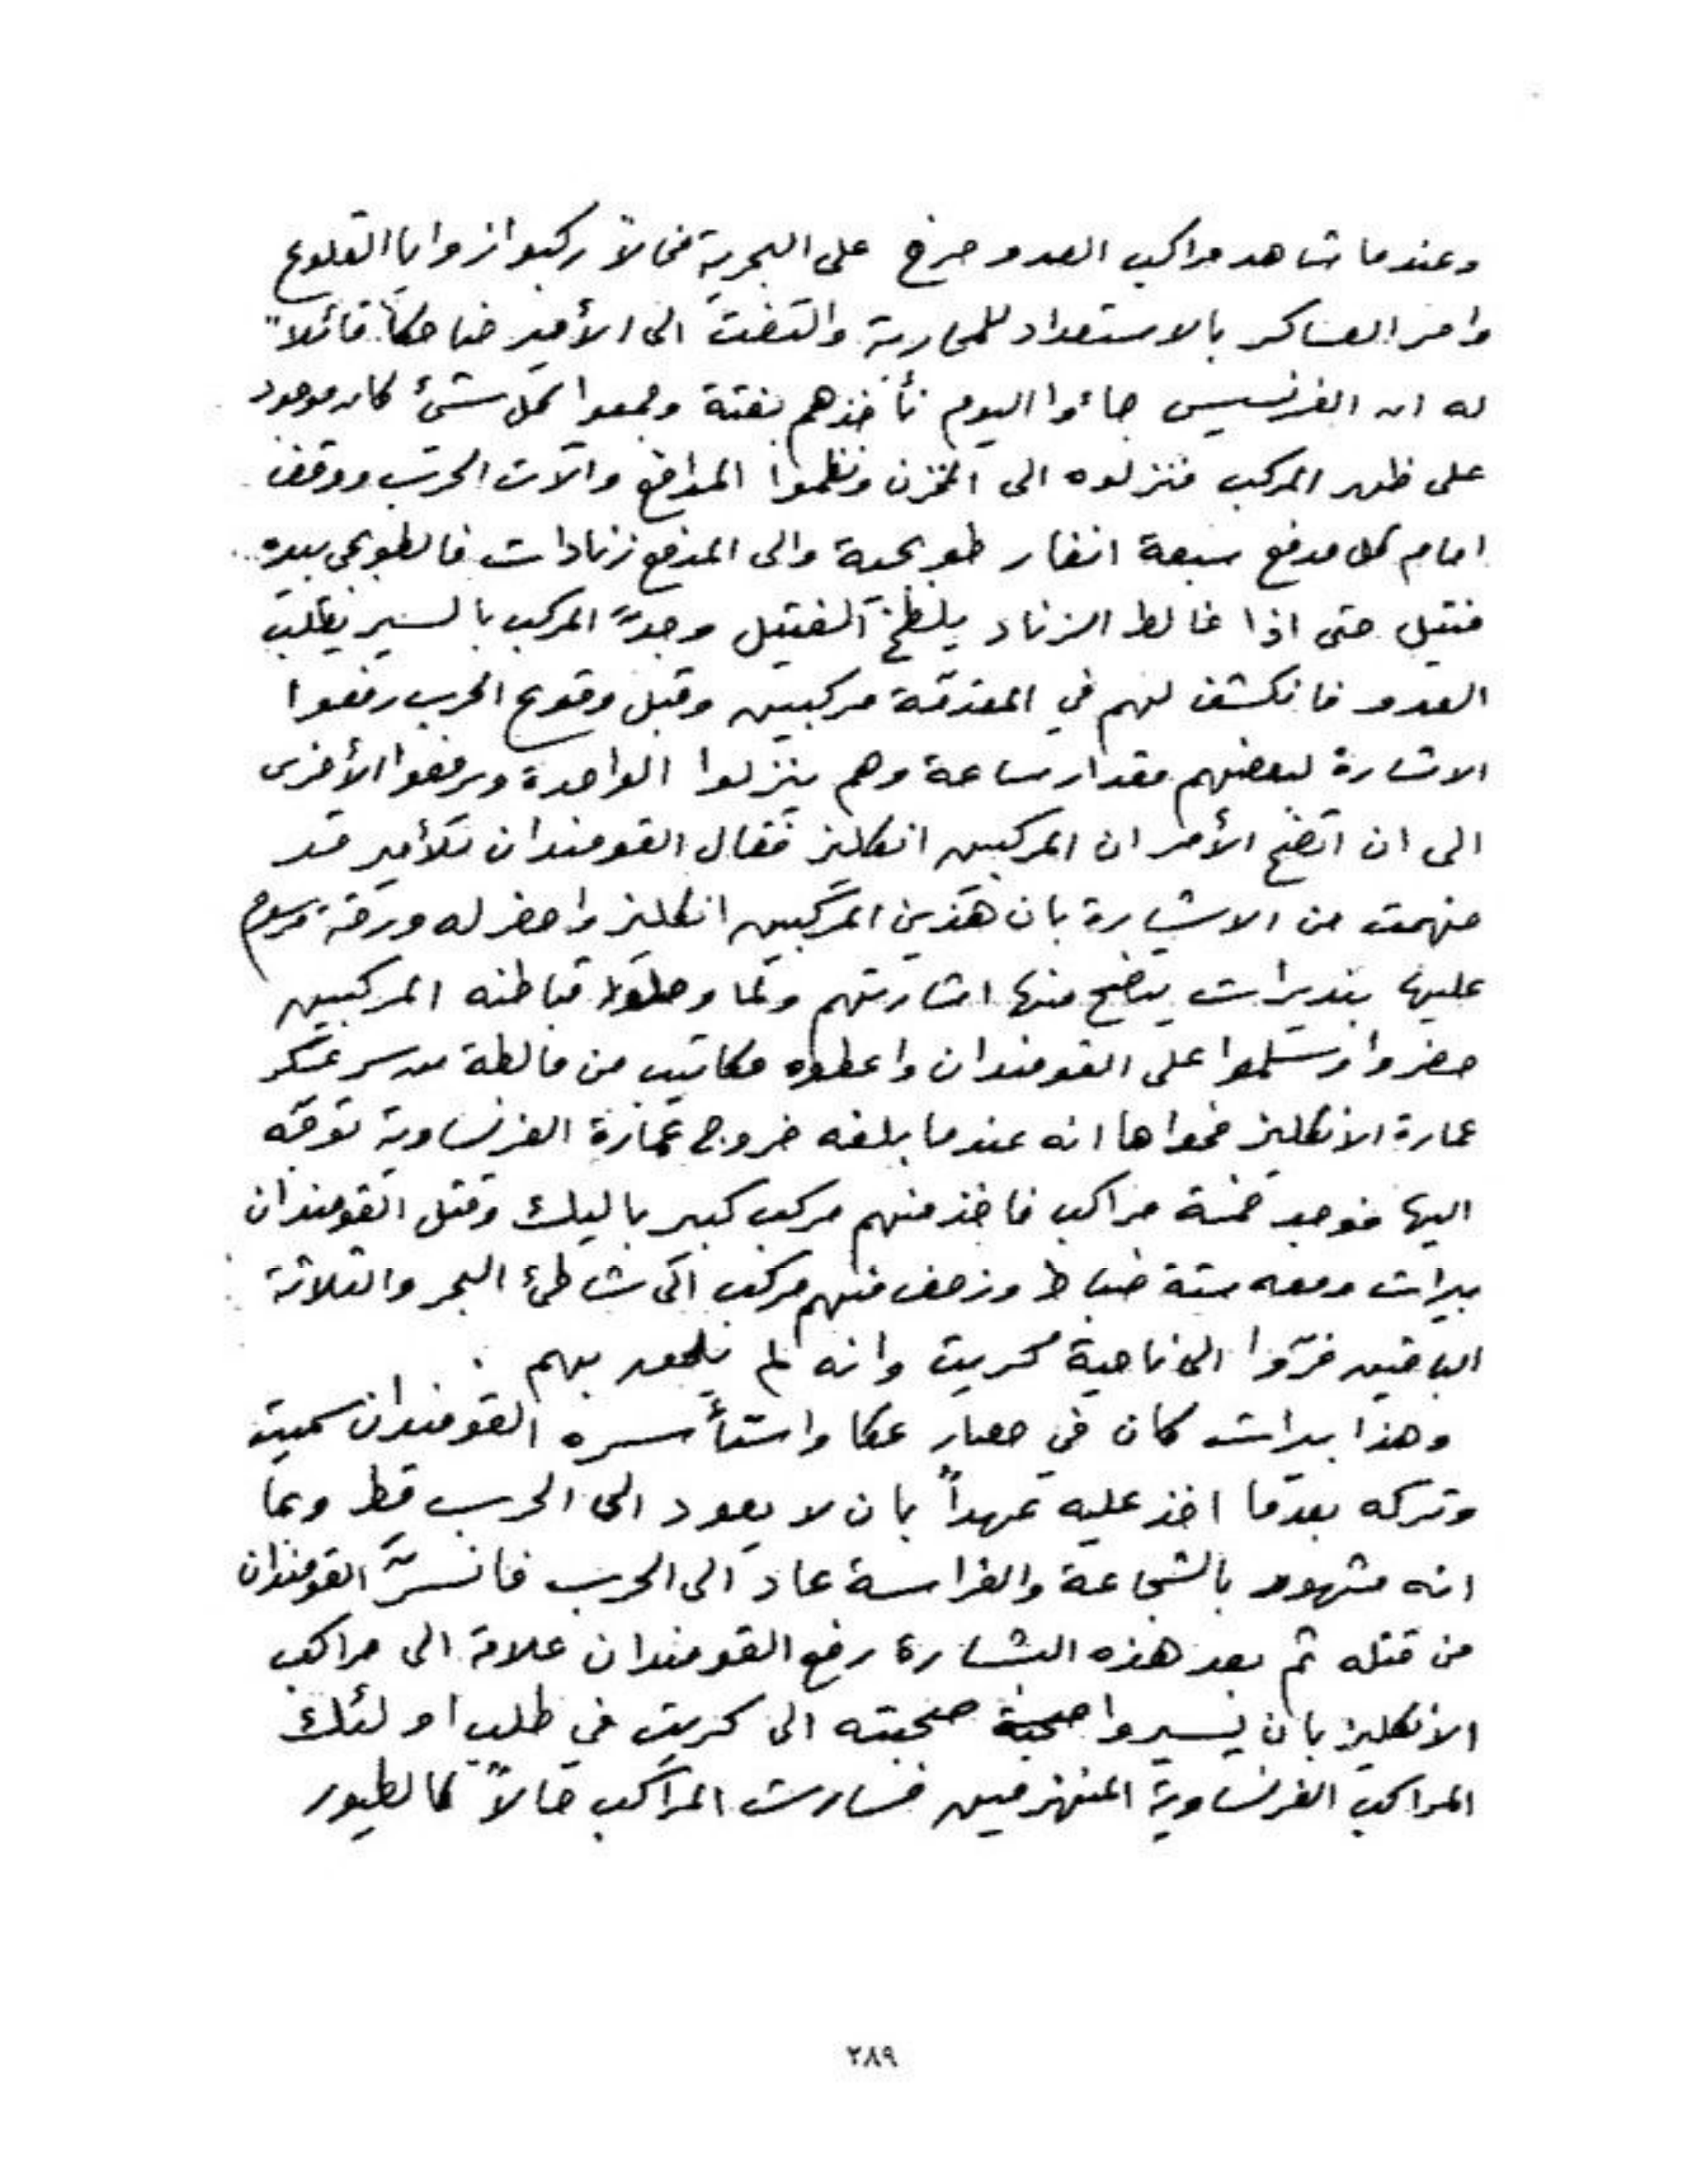 وعندما شاهد مراكب العدو صرخ على البحرية فحالاً ركبوا زوايا القلوع
وامر العساكر بالاستعداد للمحاربة والتفت الى الأمير ضاحكاً قائلاً
له ان الفرنسيس جائوا اليوم نأخذهم بغتة وجمعوا كل شئ كان موجود
على ظهر المركب فنزلوه الى المخزن ونظموا المدافع وآلات الحرب ووقف
امام كل مدفع سبعة انفار طوبجية والى المدفع زنادات فالطوبجي بيده
فتيل حتى اذا غالط الزناد يلطخ الفتيل وجدّ المركب بالسير يطلب
العدو فانكشف لهم في المقدمة مركبين وقبل وقوع الحرب رفعوا
الاشارة لبعضهم مقدار ساعة وهم ينزلوا الواحدة ويرفعوا الأخرى
الى ان اتضح الأمر ان المركبين انكليز فقال القومندان للأمير قد
فهمت من الاشارة بان هذين المركبين انكليز واحضر له ورقة مرسوم
عليها بنديرات يتضح منها اشارتهم ولما وصلوا قباطنه المركبين
حضروا وسلموا على القومندان واعطوه مكاتيب من مالطة من سر عسكر
عمارة الانكليز فحواها انه عندما بلغه خروج عمارة الفرنساوية توجه
اليها فوجد خمسة مراكب فاخذ منهم مركب كبير باليك وقتل القومندان
بيرات ومعه ستة ضباط وزحف منهم مركب الى شاطئ البحر والثلاثة
الباقين فرّوا الى ناحية كريت وانه لم يلحق بهم .
وهذا بيرات كان في حصار عكا واستأسره القومندان سميت
وتركه بعدما اخذ عليه عهداً بان لا يعود الى الحرب قط وبما
انه مشهور بالشجاعة والفراسة عاد الى الحرب فانسرّ القومندان
من قتله ثم بعد هذه البشارة رفع القومندان علامة الى مراكب
الانكليز بان يسيروا صحبة صحبته الى كريت في طلب اولئك
المراكب الفرنساوية المنهزمين فسارت المراكب حالاً كالطيور
٢٨٩